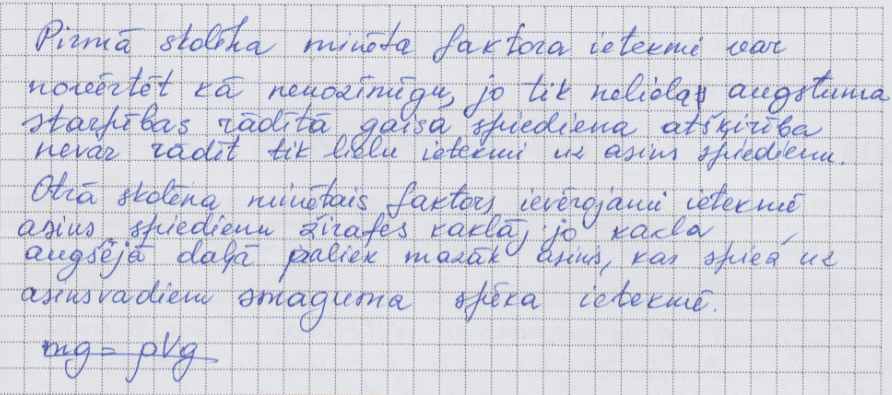 Pirmā skolēna minēta faktora ietekmi var
novērtēt kā nenozīmīgu, jo tik nelielas augstuma
starpības rādītā gaisa spiediena atšķirība
nevar rādīt tik lielu ietekmi uz asins spiedienu.
Otrā skolēna minētais faktors ievērojami ietekmē
asins spiedienu žirafes kaklā, jo kakla
augšējā daļā paliek mazāk asins, kas spiež uz
asinsvadiem smaguma spēka ietekmē.
mg = ρVg